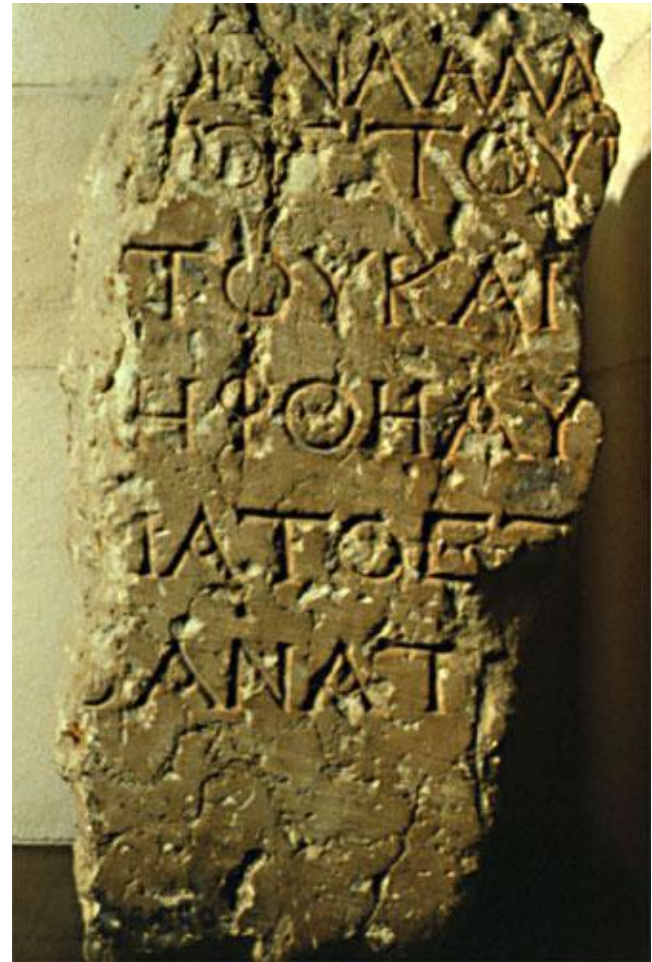 ΝΑΑΛΛ
ΟΣΤΟΥ
ΤΟΥΚΑΙ
ΗΦΘΗΑΥ
ΙΑΤΟΕΞ
ΑΝΑΤ